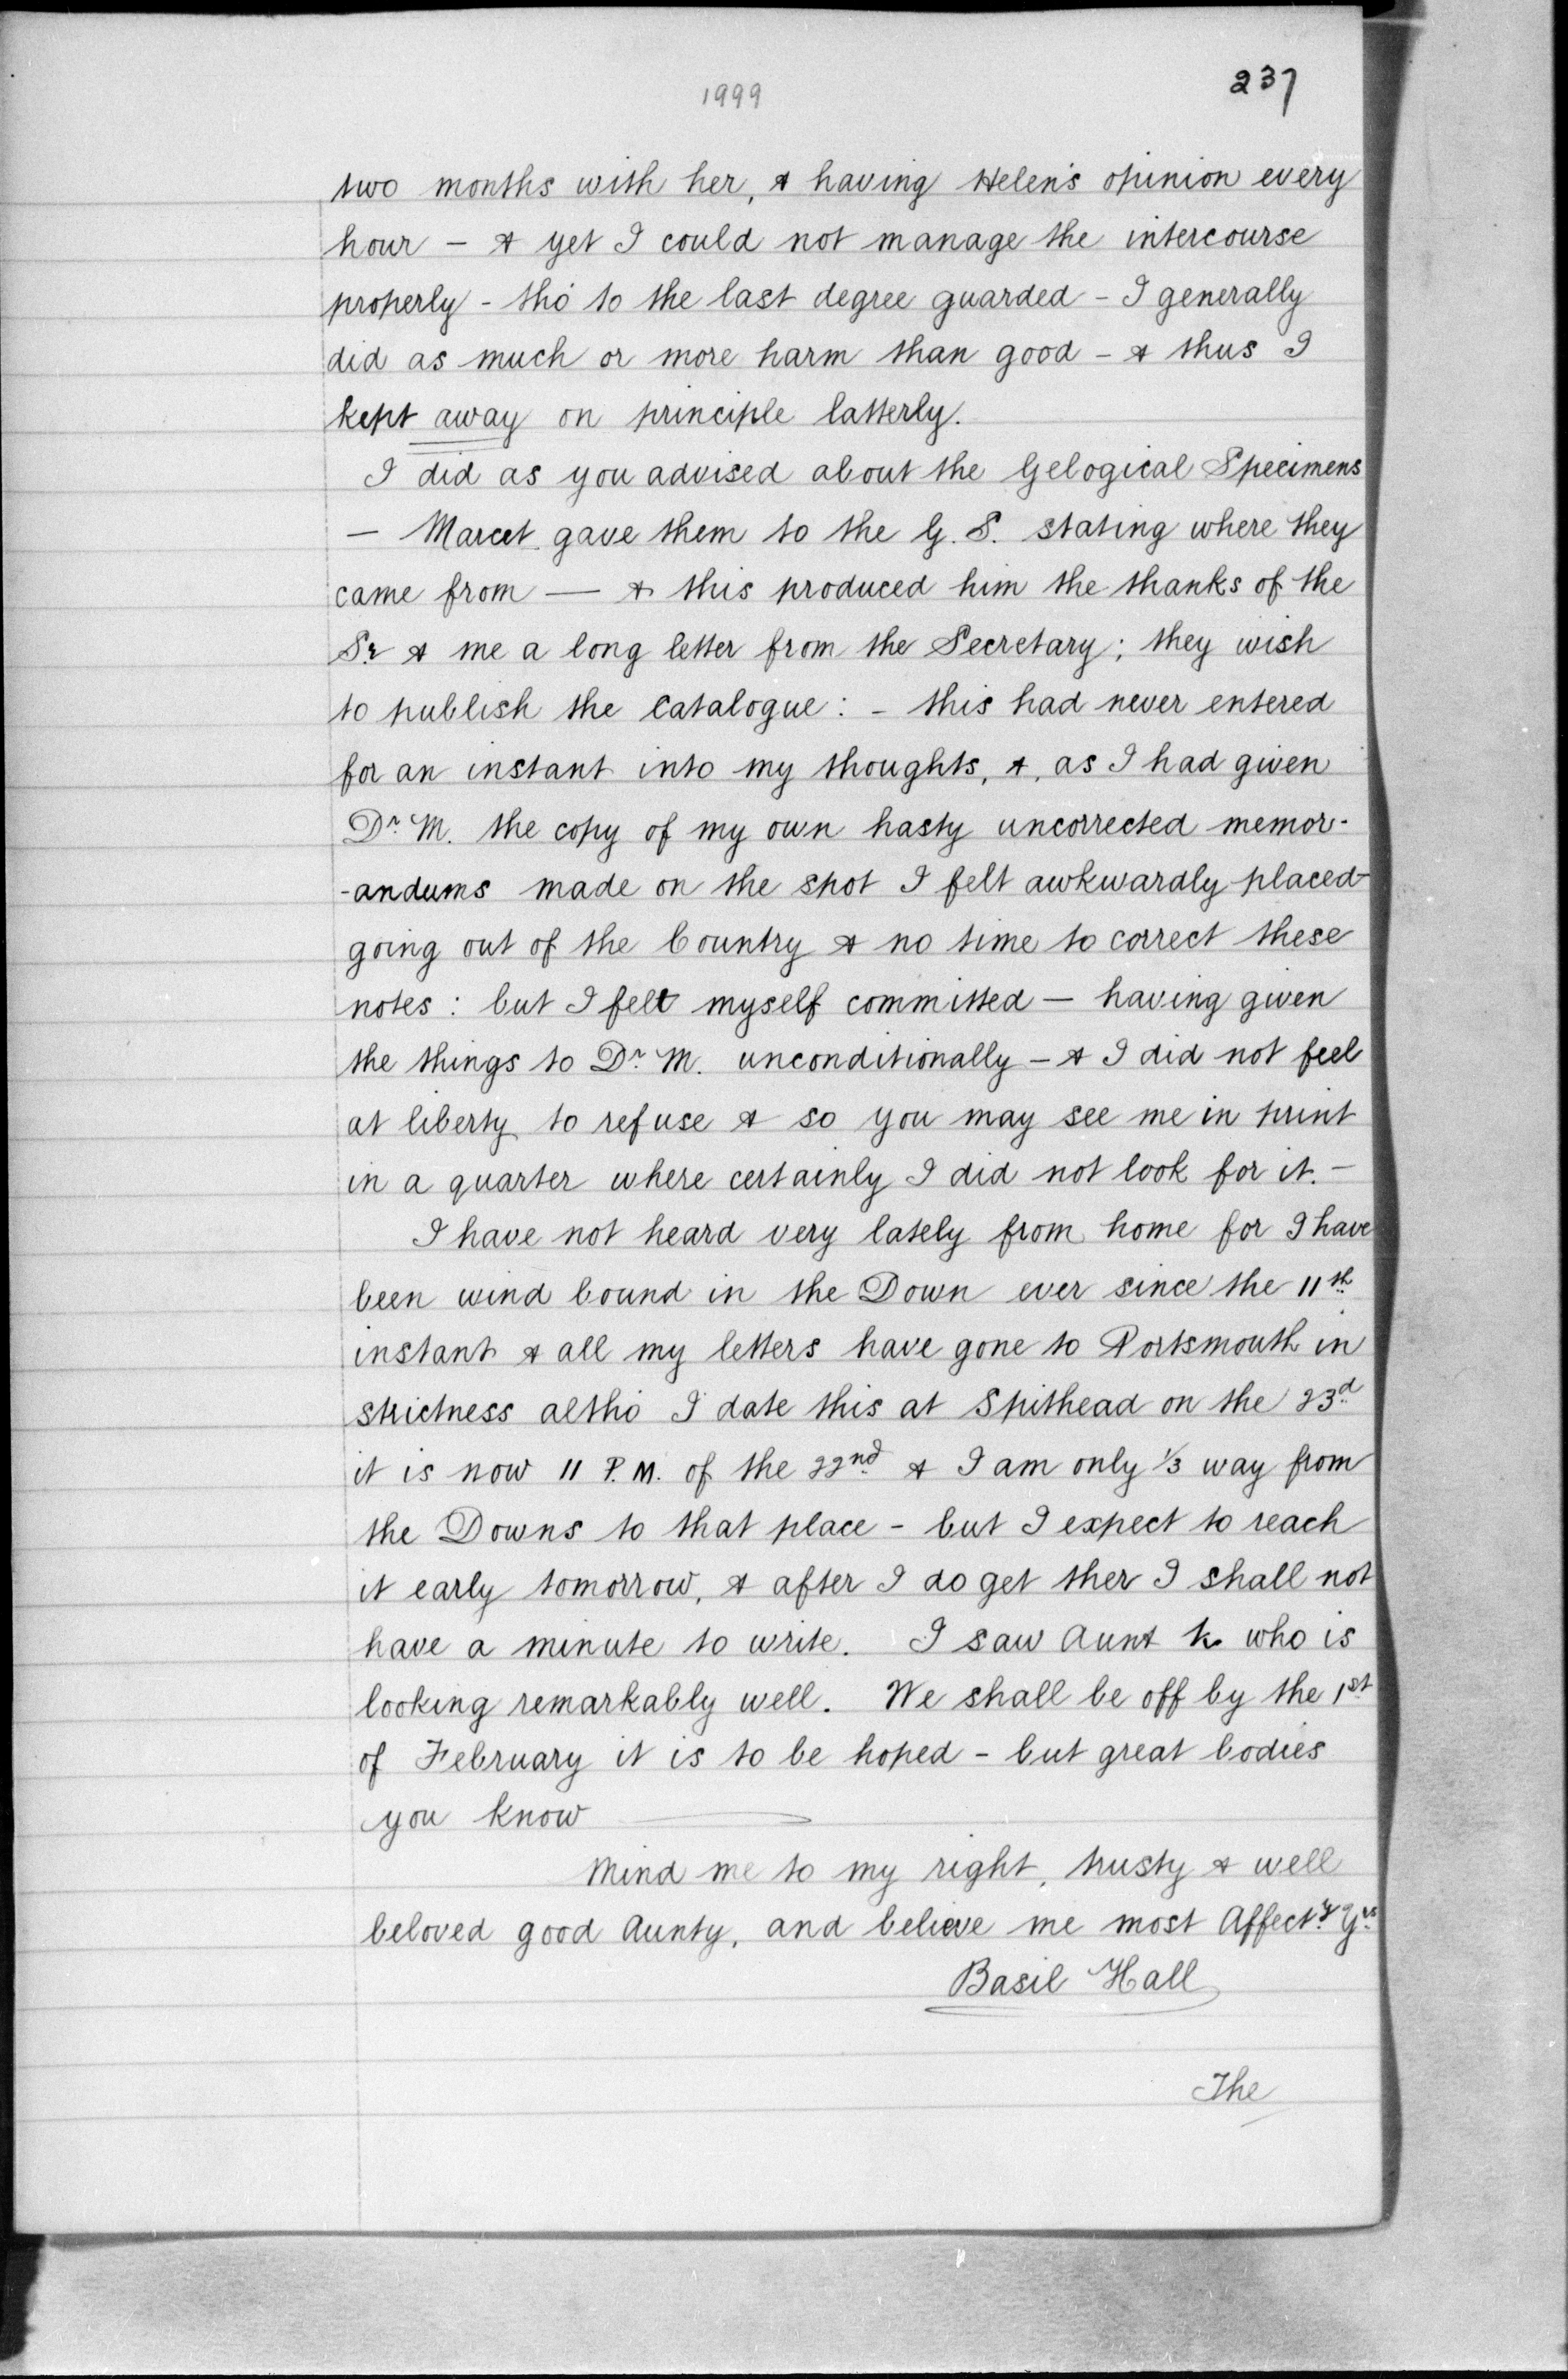 1999
237
two months with her, & having Helen's opinion every
hour - & yet I could not manage the intercourse
properly - tho' to the last degree guarded - I generally
did as much or more harm than good - & thus I
kept away on principle latterly.
I did as you advised about the Gelogical Specimens
- Marcet gave them to the G. S. stating where they
came from — & this produced him the thanks of the
Sy & me a long letter from the Secretary; they wish
to publish the Catalogue: - this had never entered
for an instant into my thoughts, &, as I had given
Dr. M. the copy of my own hasty uncorrected memor-
-andums made on the spot I felt awkwardly placed-
going out of the Country & no time to correct these
notes: but I felt myself committed — having given
the things to Dr. M. unconditionally - & I did not feel
at liberty to refuse & so you may see me in print
in a quarter where certainly I did not look for it. -
I have not heard very lately from home for I have
been wind bound in the Down ever since the 11th
instant & all my letters have gone to Portsmouth in
strictness altho' I date this at Spithead on the 23d
it is now 11 P.M. of the 22nd & I am only 1/3 way from
the Downs to that place - but I expect to reach
it early tomorrow, & after I do get ther I shall not
have a minute to write. I saw Aunt K. who is
looking remarkably well. We shall be off by the 1st
of February it is to be hoped - but great bodies
you know —
Mind me to my right, trusty & well
beloved good Aunty, and believe me most Affecty Yrs
Basil Hall
The